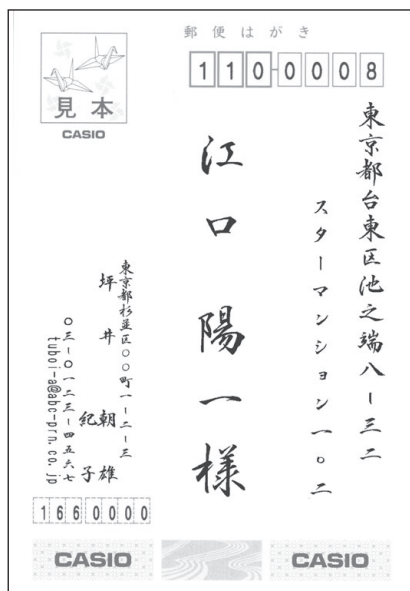 郵便はがき
110-0008
見本
CASIO
東京都台東区池之端八ー三二
スターマンション一〇二
江口 陽一様
東京都杉並区〇〇町一ー二ー三
坪井 朝雄
紀子
〇三ー〇一二三ー四五六七
tuboi-a@abc-prn.co.jp
1660000
CASIO
CASIO